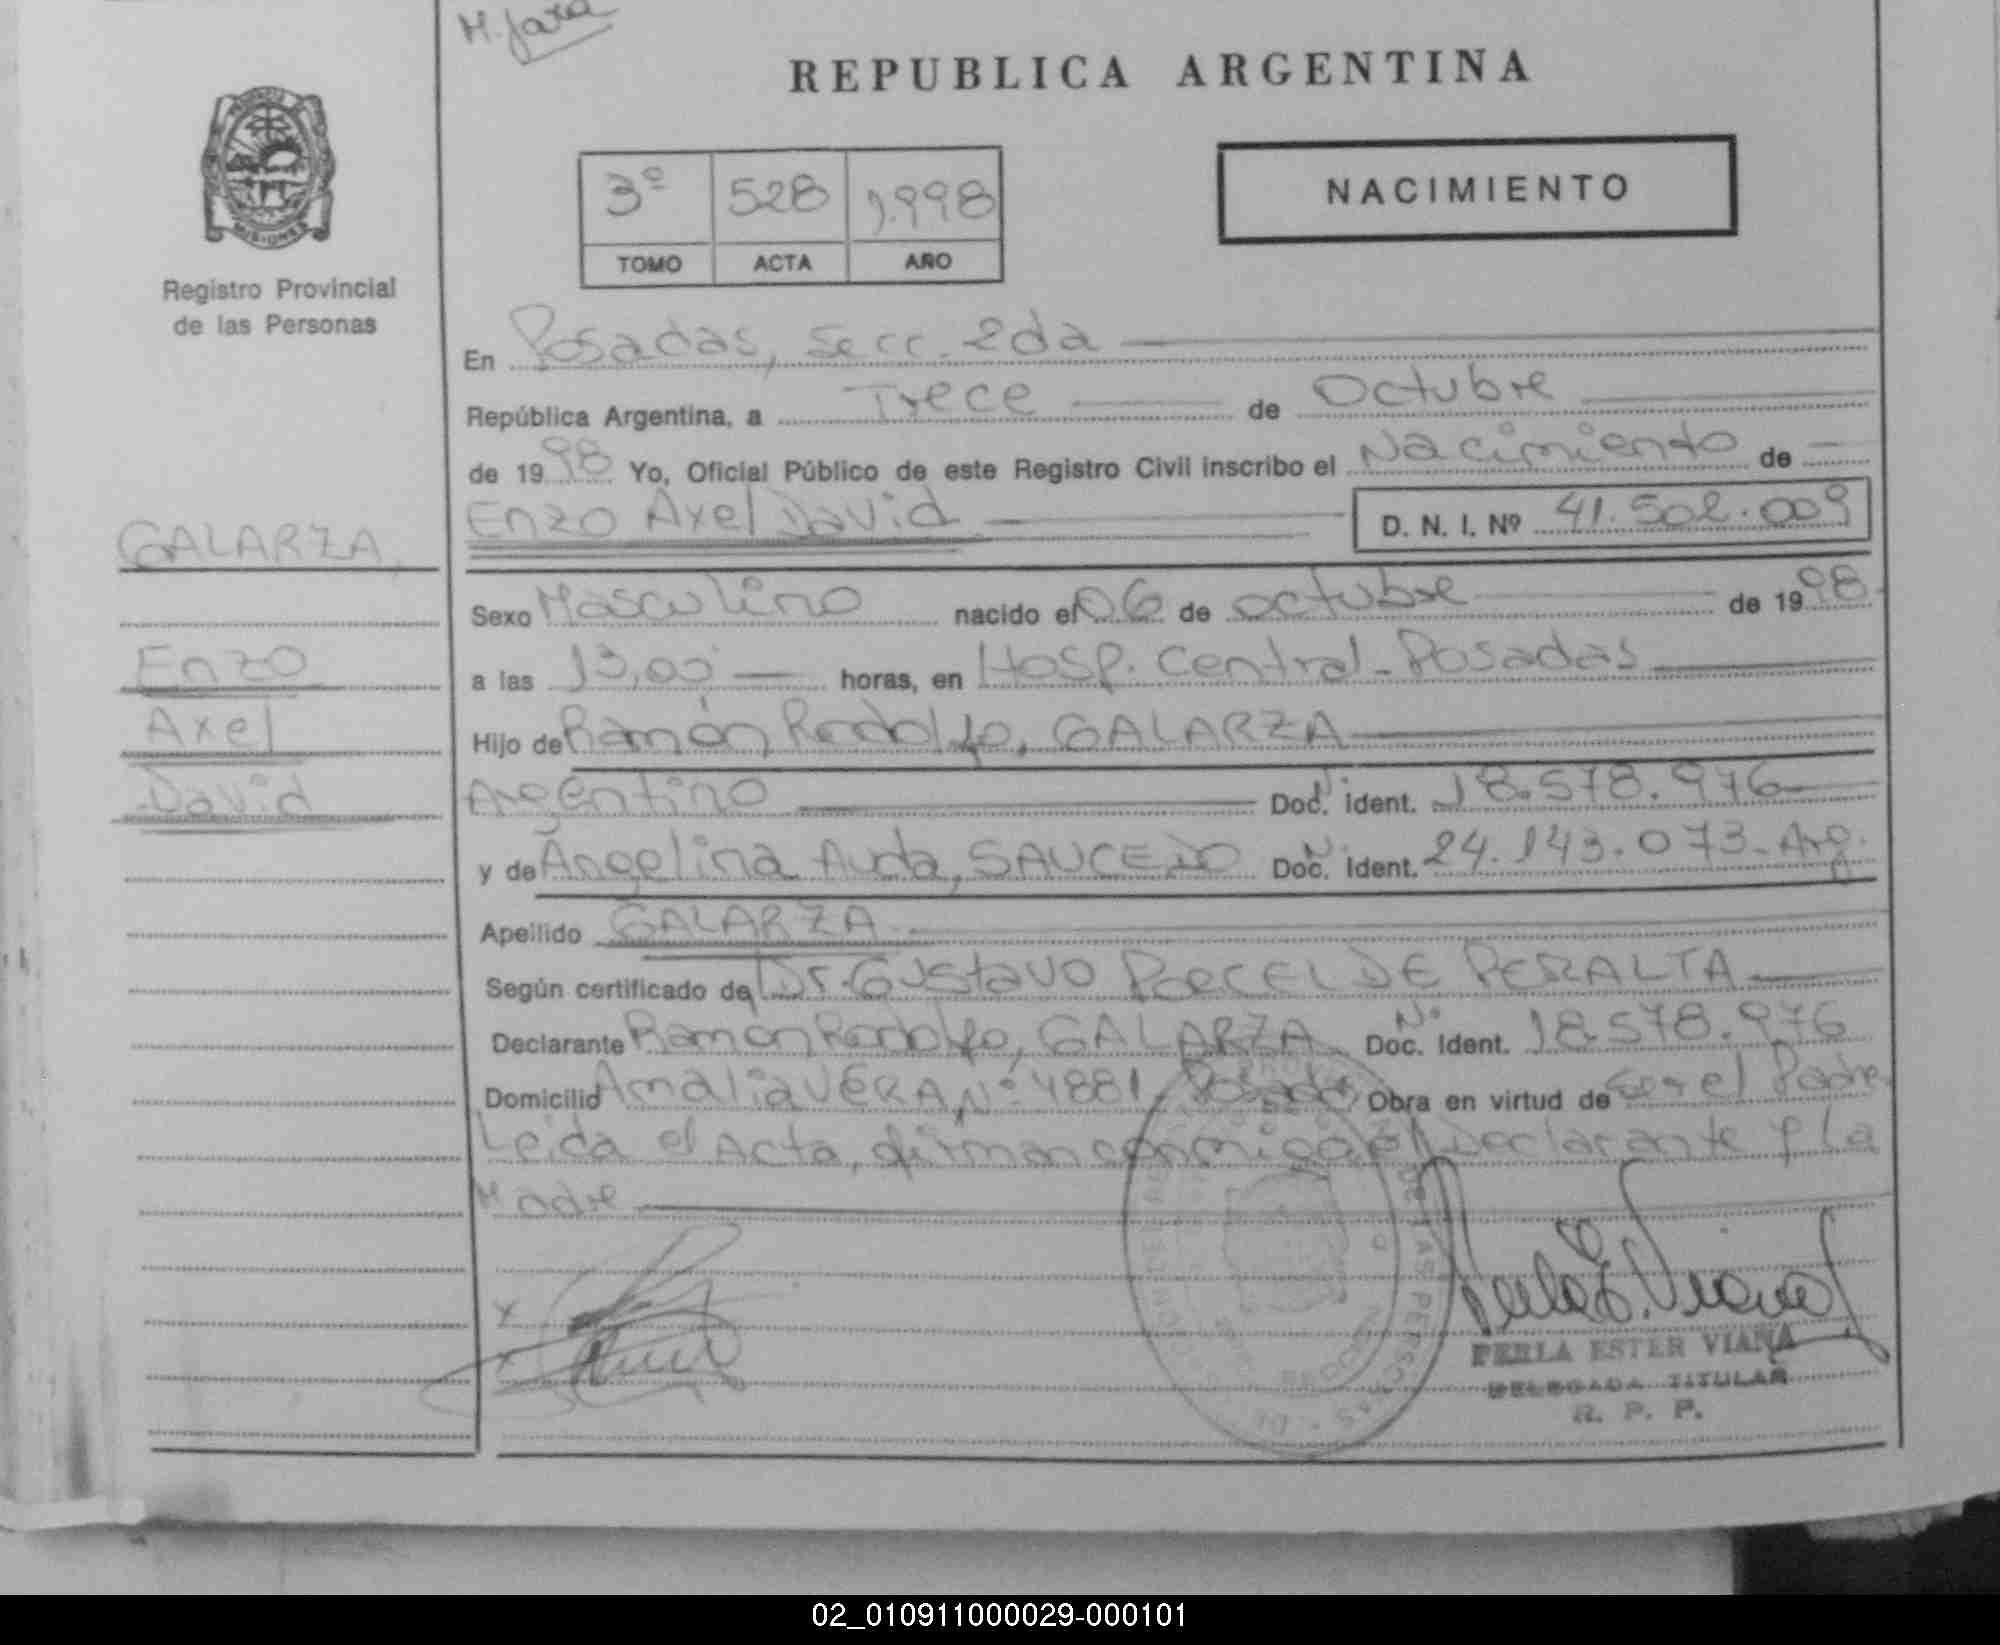 M. Jara
REPUBLICA ARGENTINA
NACIMIENTO
3º 528 1.998
TOMO ACTA AÑO
MISIONES
Registro Provincial
de las Personas
En Posadas, Secc. 2da
República Argentina, a Trece de Octubre
de 1998 Yo, Oficial Público de este Registro Civil inscribo el Nacimiento de
Enzo Axel David D. N. I. Nº 41.502.009
GALARZA,
Enzo
Axel
David
Sexo Masculino nacido el 06 de octubre de 1998
a las 13,00 horas, en Hosp. Central - Posadas
Hijo de Ramón Rodolfo, GALARZA
Argentino Nº Doc. Ident. 18.578.976
y de Angelina Auda, SAUCEDO Nº Doc. Ident. 24.143.073 - Arg.
Apellido GALARZA
Según certificado de Dr. Gustavo PORCEL DE PERALTA
Declarante Ramon Rodolfo, GALARZA Nº Doc. Ident. 18.578.976
Domicilio Amalia VERA, Nº 4881, Posadas Obra en virtud de ser el Padre
Leida el Acta, firman conmigo, el Declarante y la
Madre
x
x
Perla E. Viana
PERLA ESTER VIANA
DELEGADA TITULAR
R. P. P.
02_010911000029-000101